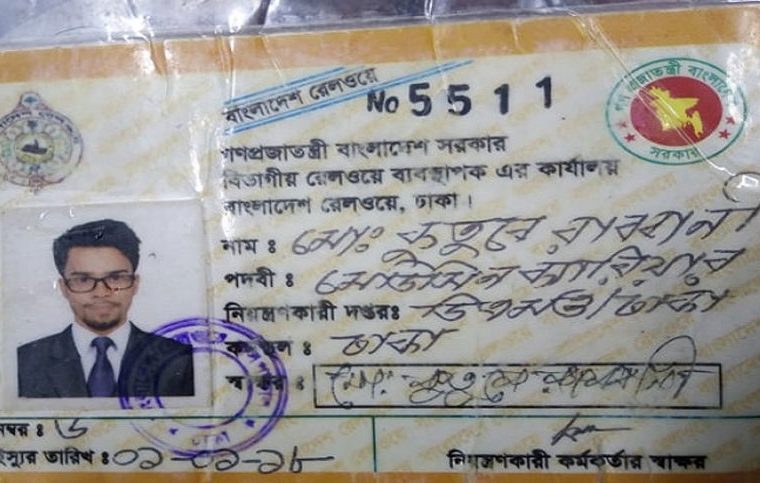 বাংলাদেশ রেলওয়ে
No 5511
গণপ্রজাতন্ত্রী বাংলাদেশ
সরকার
গণপ্রজাতন্ত্রী বাংলাদেশ সরকার
বিভাগীয় রেলওয়ে ব্যবস্থাপক এর কার্যালয়
বাংলাদেশ রেলওয়ে, ঢাকা।
নাম : মোঃ কুতুবে রাব্বানী
পদবী : মেডিসিন ক্যারিয়ার
নিয়ন্ত্রণকারী দপ্তরঃ ডিএমও/ঢাকা
: ঢাকা
স্বাক্ষর : মোঃ কুতুবে রাব্বানী
ম্বর : ৬
ইস্যুর তারিখ : ০১-০১-১৮
নিয়ন্ত্রণকারী কর্মকর্তার স্বাক্ষর